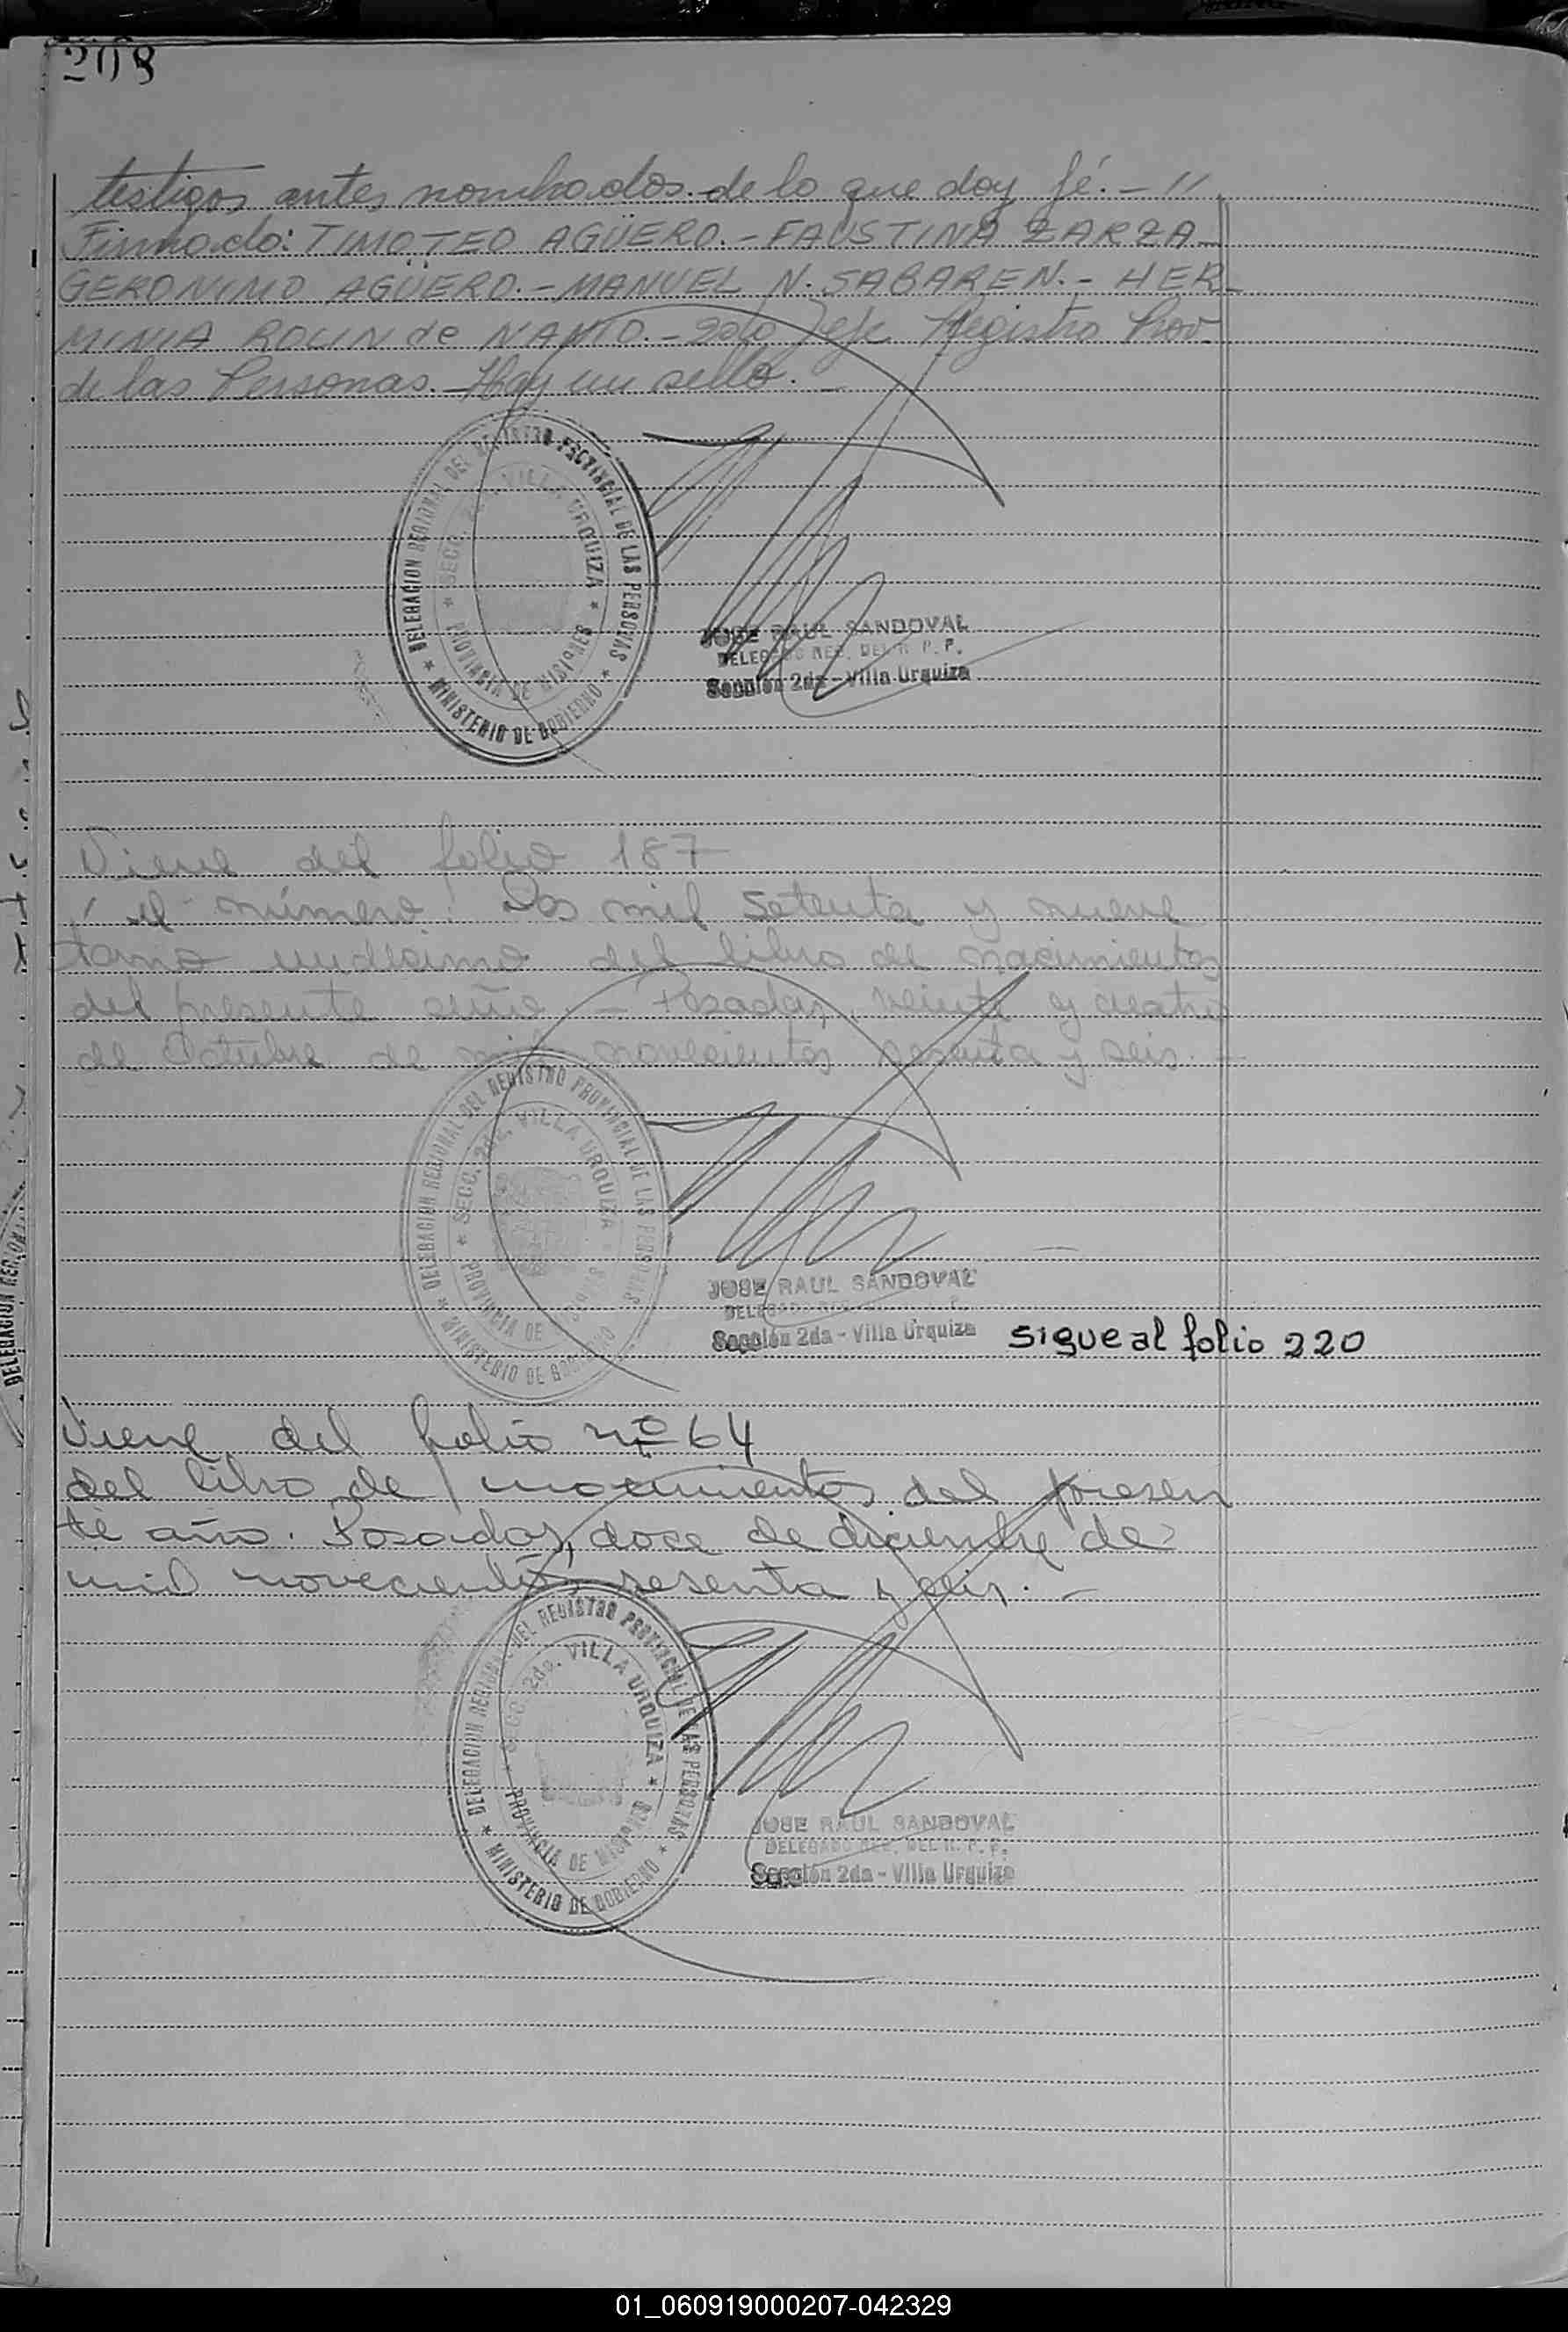 208
testigos antes nombrados de lo que doy fé.- "
Firmado: TIMOTEO AGÜERO.- FAUSTINA ZARZA
GERONIMO AGÜERO.- MANUEL N. SABAREN.- HER-
MINIA ROLIN de NANTO.- Jefe Registro Prov.
de las Personas.- Hay un sello.-
DELEGACION REGIONAL DEL REGISTRO PROVINCIAL DE LAS PERSONAS
SECC. VILLA URQUIZA
PROVINCIA DE MISIONES
MINISTERIO DE GOBIERNO
JOSE RAUL SANDOVAL
DELEGADO REG. DEL R. P. P.
Sección 2da - Villa Urquiza
Viene del folio 187
el número: Dos mil setenta y nueve
tomo undecimo del libro de nacimientos
del presente año - Posadas, veinte y cuatro
de Octubre de mil novecientos sesenta y seis.-
DELEGACION REGIONAL DEL REGISTRO PROVINCIAL DE LAS PERSONAS
SECC. 2da. VILLA URQUIZA
PROVINCIA DE MISIONES
MINISTERIO DE GOBIERNO
JOSE RAUL SANDOVAL
DELEGADO REG. P.
Sección 2da - Villa Urquiza
sigue al folio 220
Viene del folio nº 64
del libro de nacimientos del presen
te año. Posadas, doce de diciembre de
mil novecientos sesenta y seis.-
DELEGACION REGIONAL DEL REGISTRO PROVINCIAL DE LAS PERSONAS
SECC. 2da. VILLA URQUIZA
PROVINCIA DE MISIONES
MINISTERIO DE GOBIERNO
JOSE RAUL SANDOVAL
DELEGADO REG. DEL R. P. P.
Sección 2da - Villa Urquiza
DELEGACION REGIONAL
01_060919000207-042329